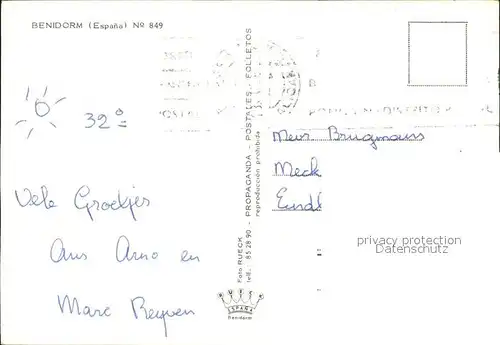 BENIDORM (España) Nº 849
32º
Vele Groetjes
Ans Arno en
Marc Reyven
Foto RUECK - PROPAGANDA - POSTALES - FOLLETOS
telf. 85 28 90 - reproducción prohibida
RUECK
ESPAÑA
Benidorm
Mevr Brugmans
Meck
Eind
privacy protection
Datenschutz